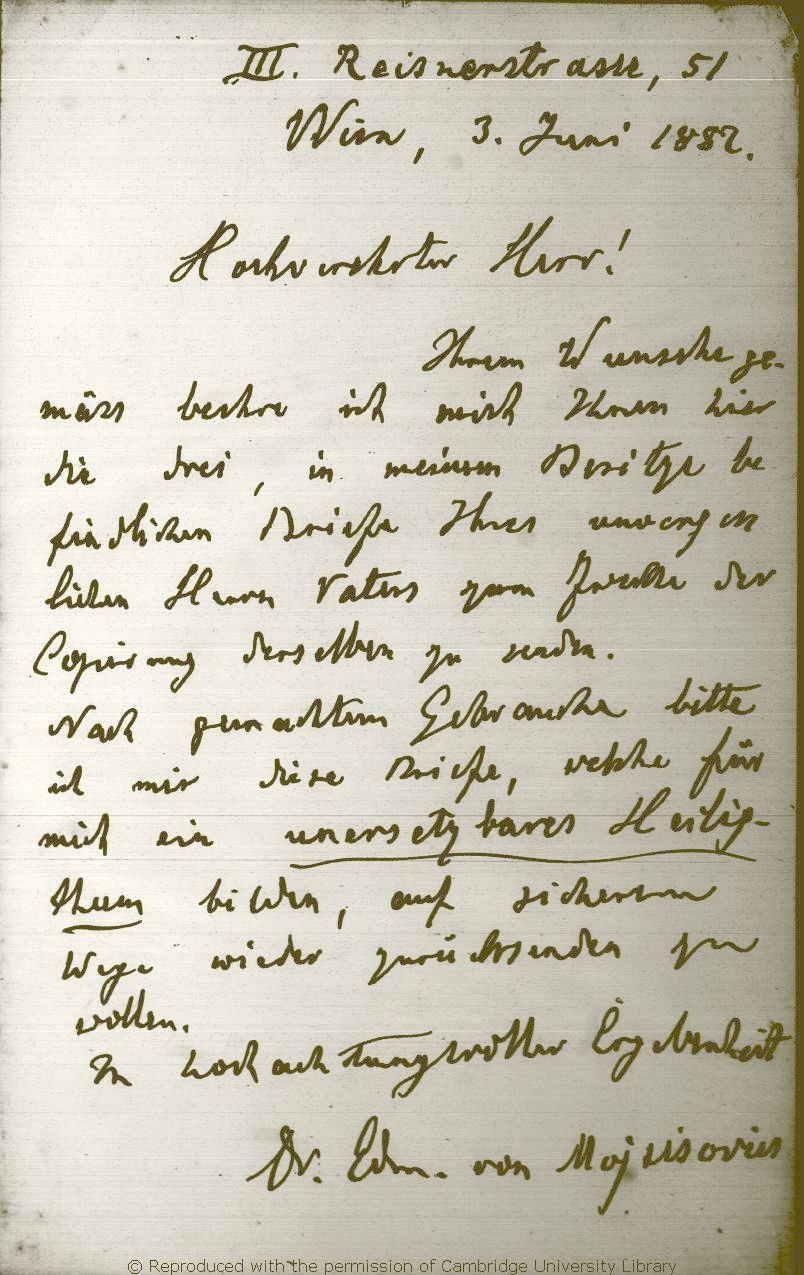 III. Reisnerstrasse, 51
Wien, 3. Juni 1882.
Hochverehrter Herr!
Ihrem Wunsche ge-
mäss beehre ich mich Ihnen hier
die drei, in meinem Besitze be
findlichen Briefe Ihres unvergess
lichen Herrn Vaters zum Zwecke der
Copierung derselben zu senden.
Nach gemachtem Gebrauche bitte
ich mir diese Briefe, welche für
mich ein unersetzbares Heilig-
thum bilden, auf sicherem
Wege wieder zurücksenden zu
wollen.
In hochachtungsvoller Ergebenheit
Dr. Edm. von Mojsisovics
© Reproduced with the permission of Cambridge University Library